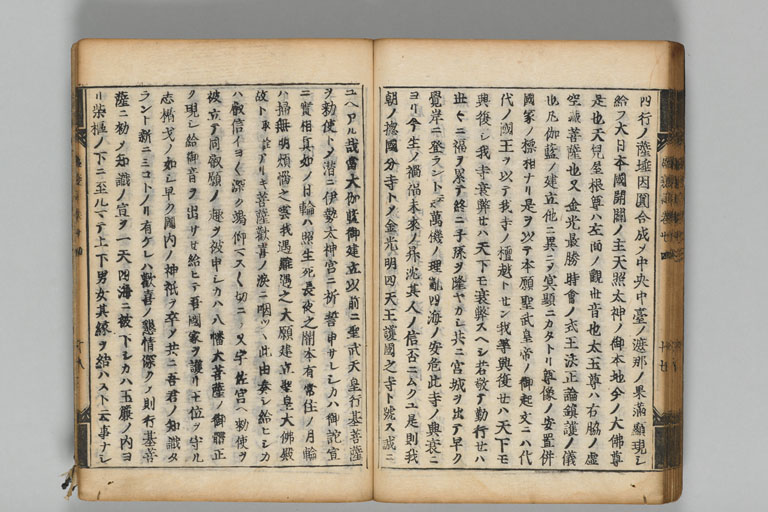 四行ノ薩埵因圓合成メ中央中臺ノ遮那ノ果滿顯現シ
給フ大日本國開闢ノ主天照太神ノ御本地今ノ大佛尊
是也天兒屋根尊ハ左面ノ觀世音也太玉尊ハ右脇ノ虚
空藏菩薩也又金光最勝時會ノ衣王法正論鎮護ノ儀
也凡伽藍ノ建立他ニ異ニヲ冥顯ニカタトリ尊像ノ安置併
國家ノ標相ナリ是ヲ以テ本願聖武皇帝ノ御起文ニハ代
代ノ國王ヲ以テ我寺ノ檀越トセン我寺興復セハ天下モ
興復シ我寺衰弊セハ天下モ衰弊スヘシ若敬テ勤行セハ
世々ニ福ヲ累テ終ニ子孫ヲ隆ヤカシ共ニ宮城ヲ出テ早ク
覺岸ニ登ラント云々萬機ノ理亂四海ノ安危此寺ノ興衰ニ
ヨリ今生ノ禍福未來ノ昇沈其人ノ信否ニムクユ是則我
朝ノ惣國分寺トメ金光明四天王護國之寺ト號ス或ニ
ユヘアル哉當大伽藍御建立以前ニ聖武天皇行基菩薩
ヲ勅使トメ潛ニ伊勢太神宮ニ祈誓申サレシカハ御詫宣
ニ實相眞如ノ日輪ハ照生死長夜之闇本有常住ノ月輪
ハ掃無明煩惱之雲我遇難遇之大願建立聖皇大佛殿
故ト アリキ菩薩歡喜ノ涙ニ咽ツヽ此由奏シ給ヒシカ
ハ叡信イヨ〱深ク渴仰マス〱切ニメ又宇佐宮ヘ勅使ヲ
被立テ同叡願ノ趣ヲ被申シカハ八幡大菩薩ノ御體正
ク現シ給御音ヲ出サセ給ヒテ吾國家ヲ護リ王位ヲ守ル
志楯戈ノ如シ早ク國内ノ神祇ヲ卒メ共ニ吾君ノ知識タ
ラント新ニミコトノリ有ケレハ歡喜ノ懇情深クメ則行基菩
薩ニ勅メ知識ノ宣ヲ一天四海ニ被下シカハ玉簾ノ内ヨ
リ柴樞ノ下ニ至ルマテ上下男女其縁ヲ結ハスト云事ナシ